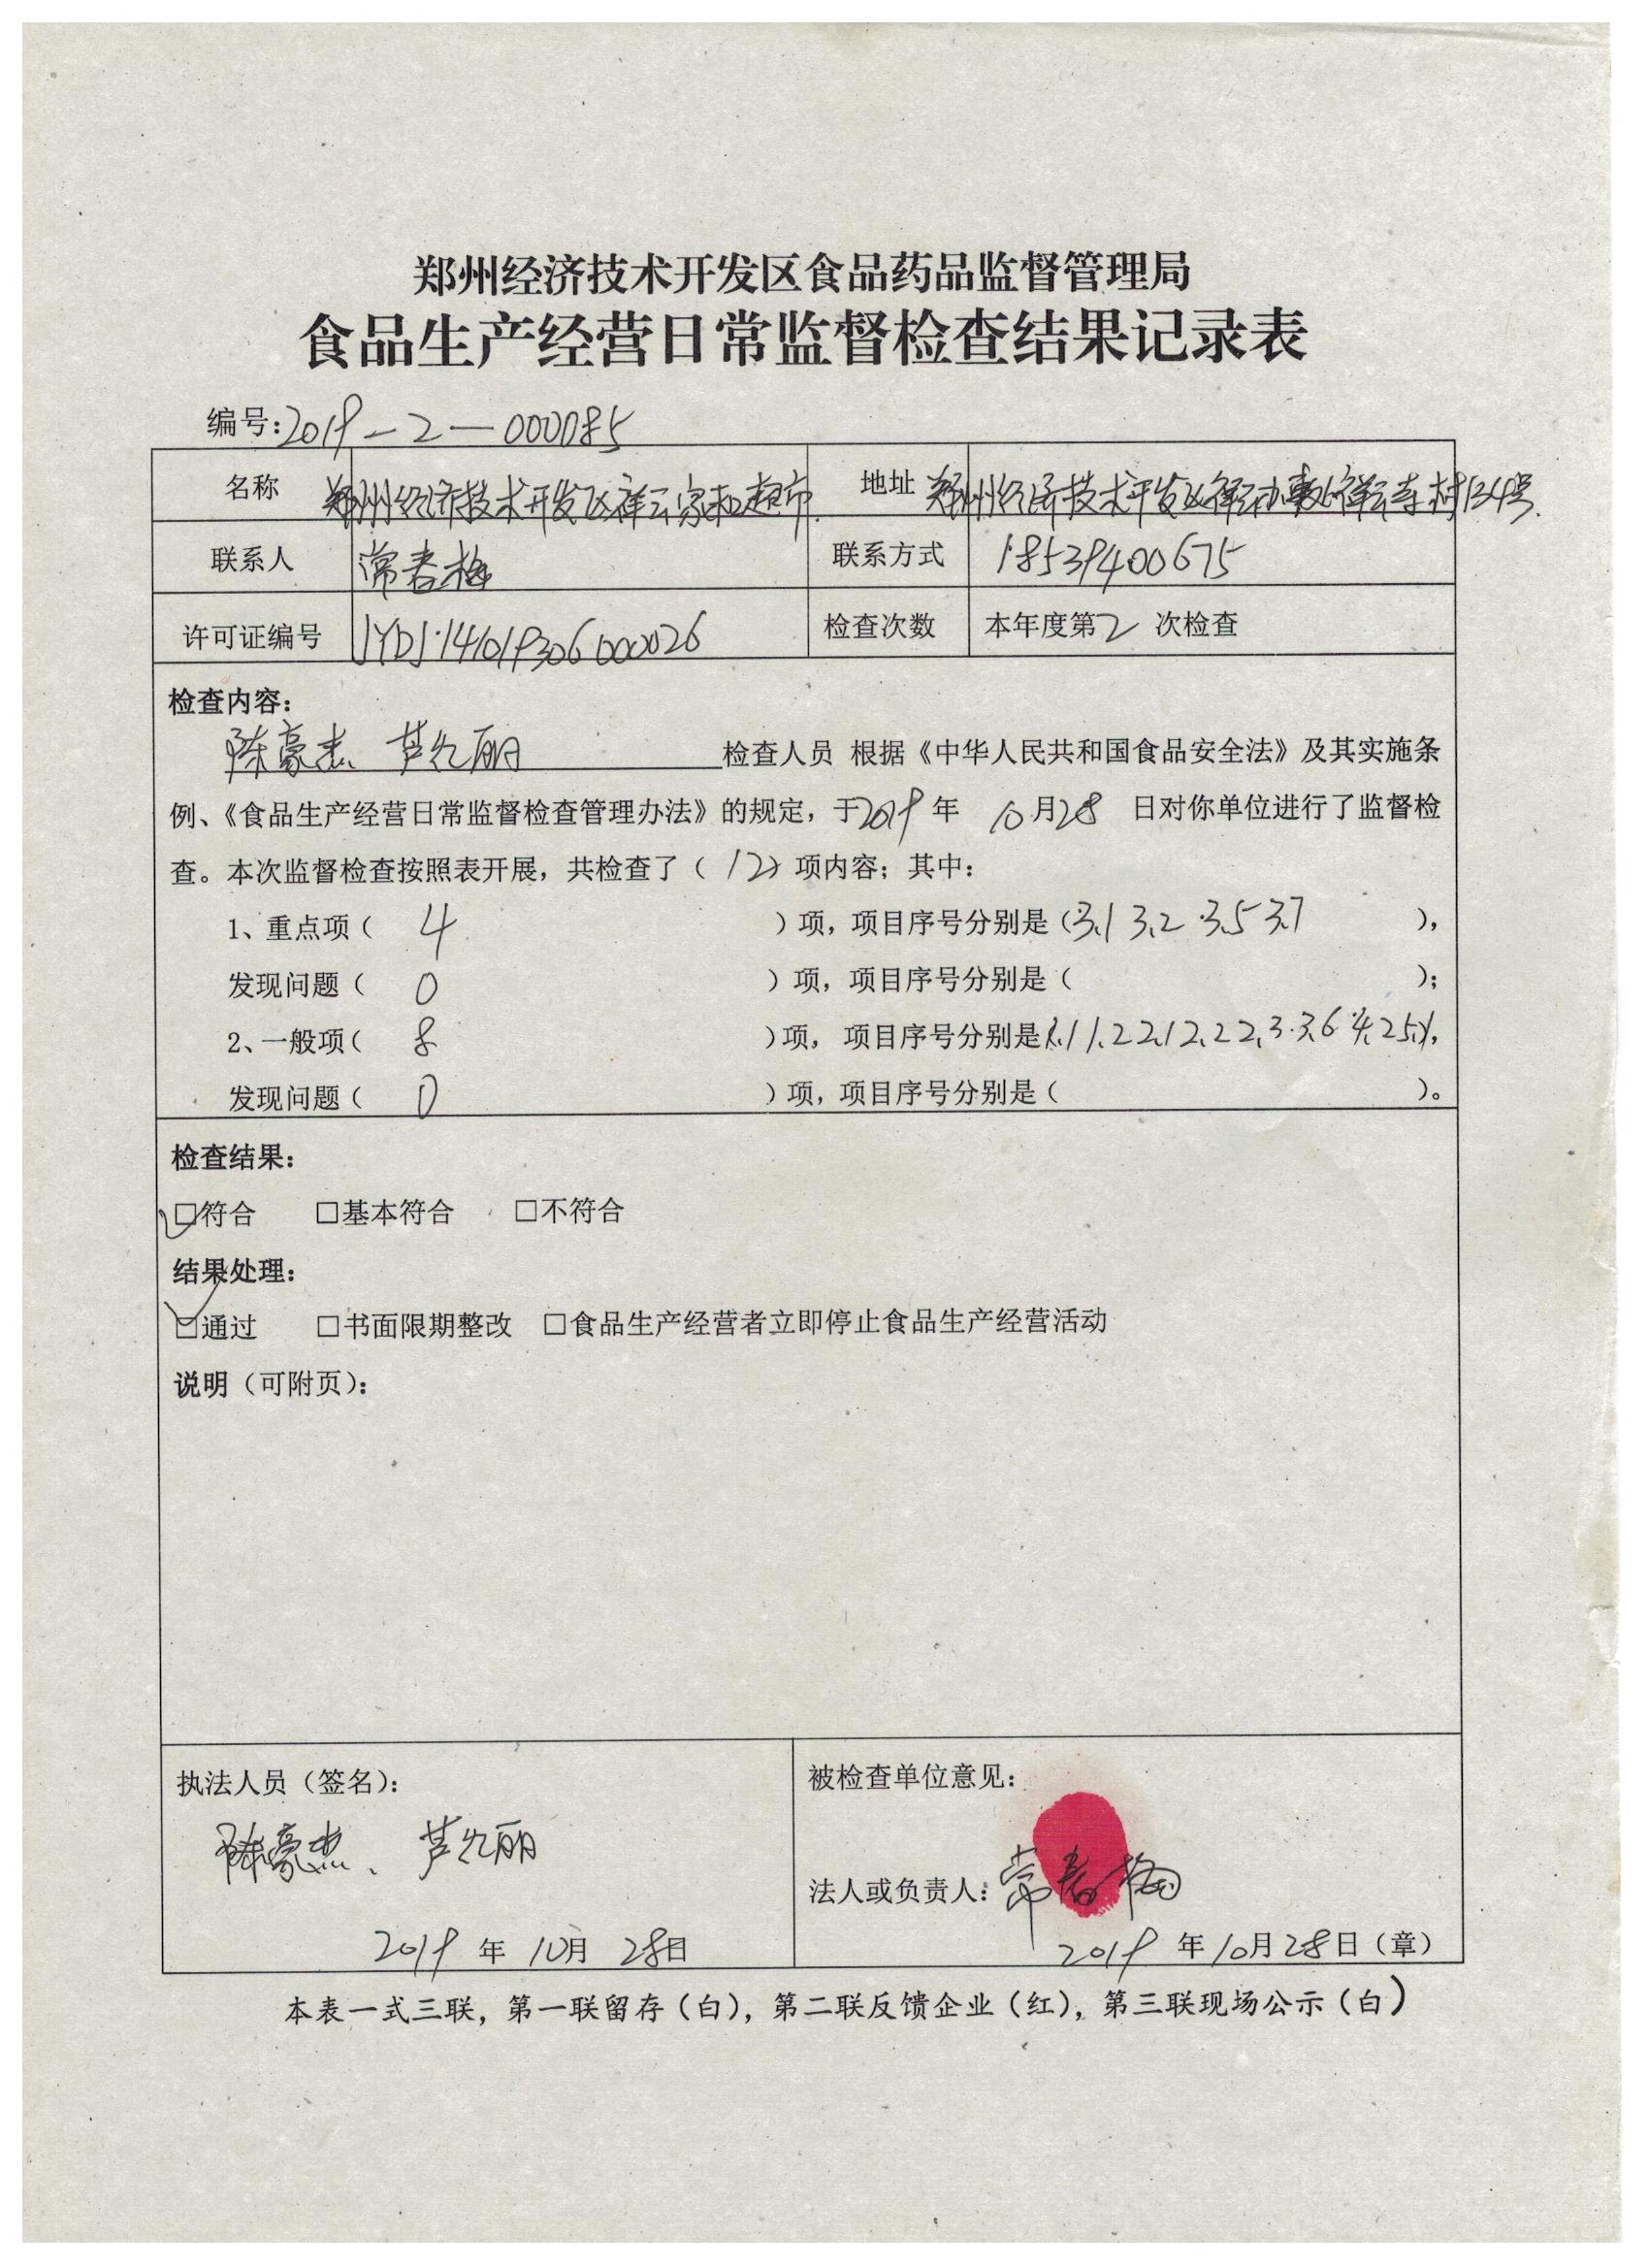 郑州经济技术开发区食品药品监督管理局
食品生产经营日常监督检查结果记录表
编号:2019-2-000085
名称 郑州经济技术开发区祥云家和超市 地址 郑州经济技术开发区祥云办事处祥云寺村134号
联系人 常春梅 联系方式 18539400675
许可证编号 JYDJ14101930600026 检查次数 本年度第2次检查
检查内容:
陈豪杰、芦红丽 检查人员 根据《中华人民共和国食品安全法》及其实施条
例、《食品生产经营日常监督检查管理办法》的规定,于2019年 10月28 日对你单位进行了监督检
查。本次监督检查按照表开展,共检查了(12)项内容;其中:
1、重点项( 4 )项,项目序号分别是(3.1 3.2 3.5 3.7 ),
发现问题( 0 )项,项目序号分别是( );
2、一般项( 8 )项, 项目序号分别是(1.1 1.2 2.1 2.2 2.3 3.6 4.2 5.1),
发现问题( 0 )项,项目序号分别是( )。
检查结果:
☑符合 □基本符合 □不符合
结果处理:
☑通过 □书面限期整改 □食品生产经营者立即停止食品生产经营活动
说明(可附页):
执法人员(签名): 被检查单位意见:
陈豪杰、芦红丽
法人或负责人:常春梅
2019年10月28日 2019年10月28日(章)
本表一式三联,第一联留存(白),第二联反馈企业(红),第三联现场公示(白)